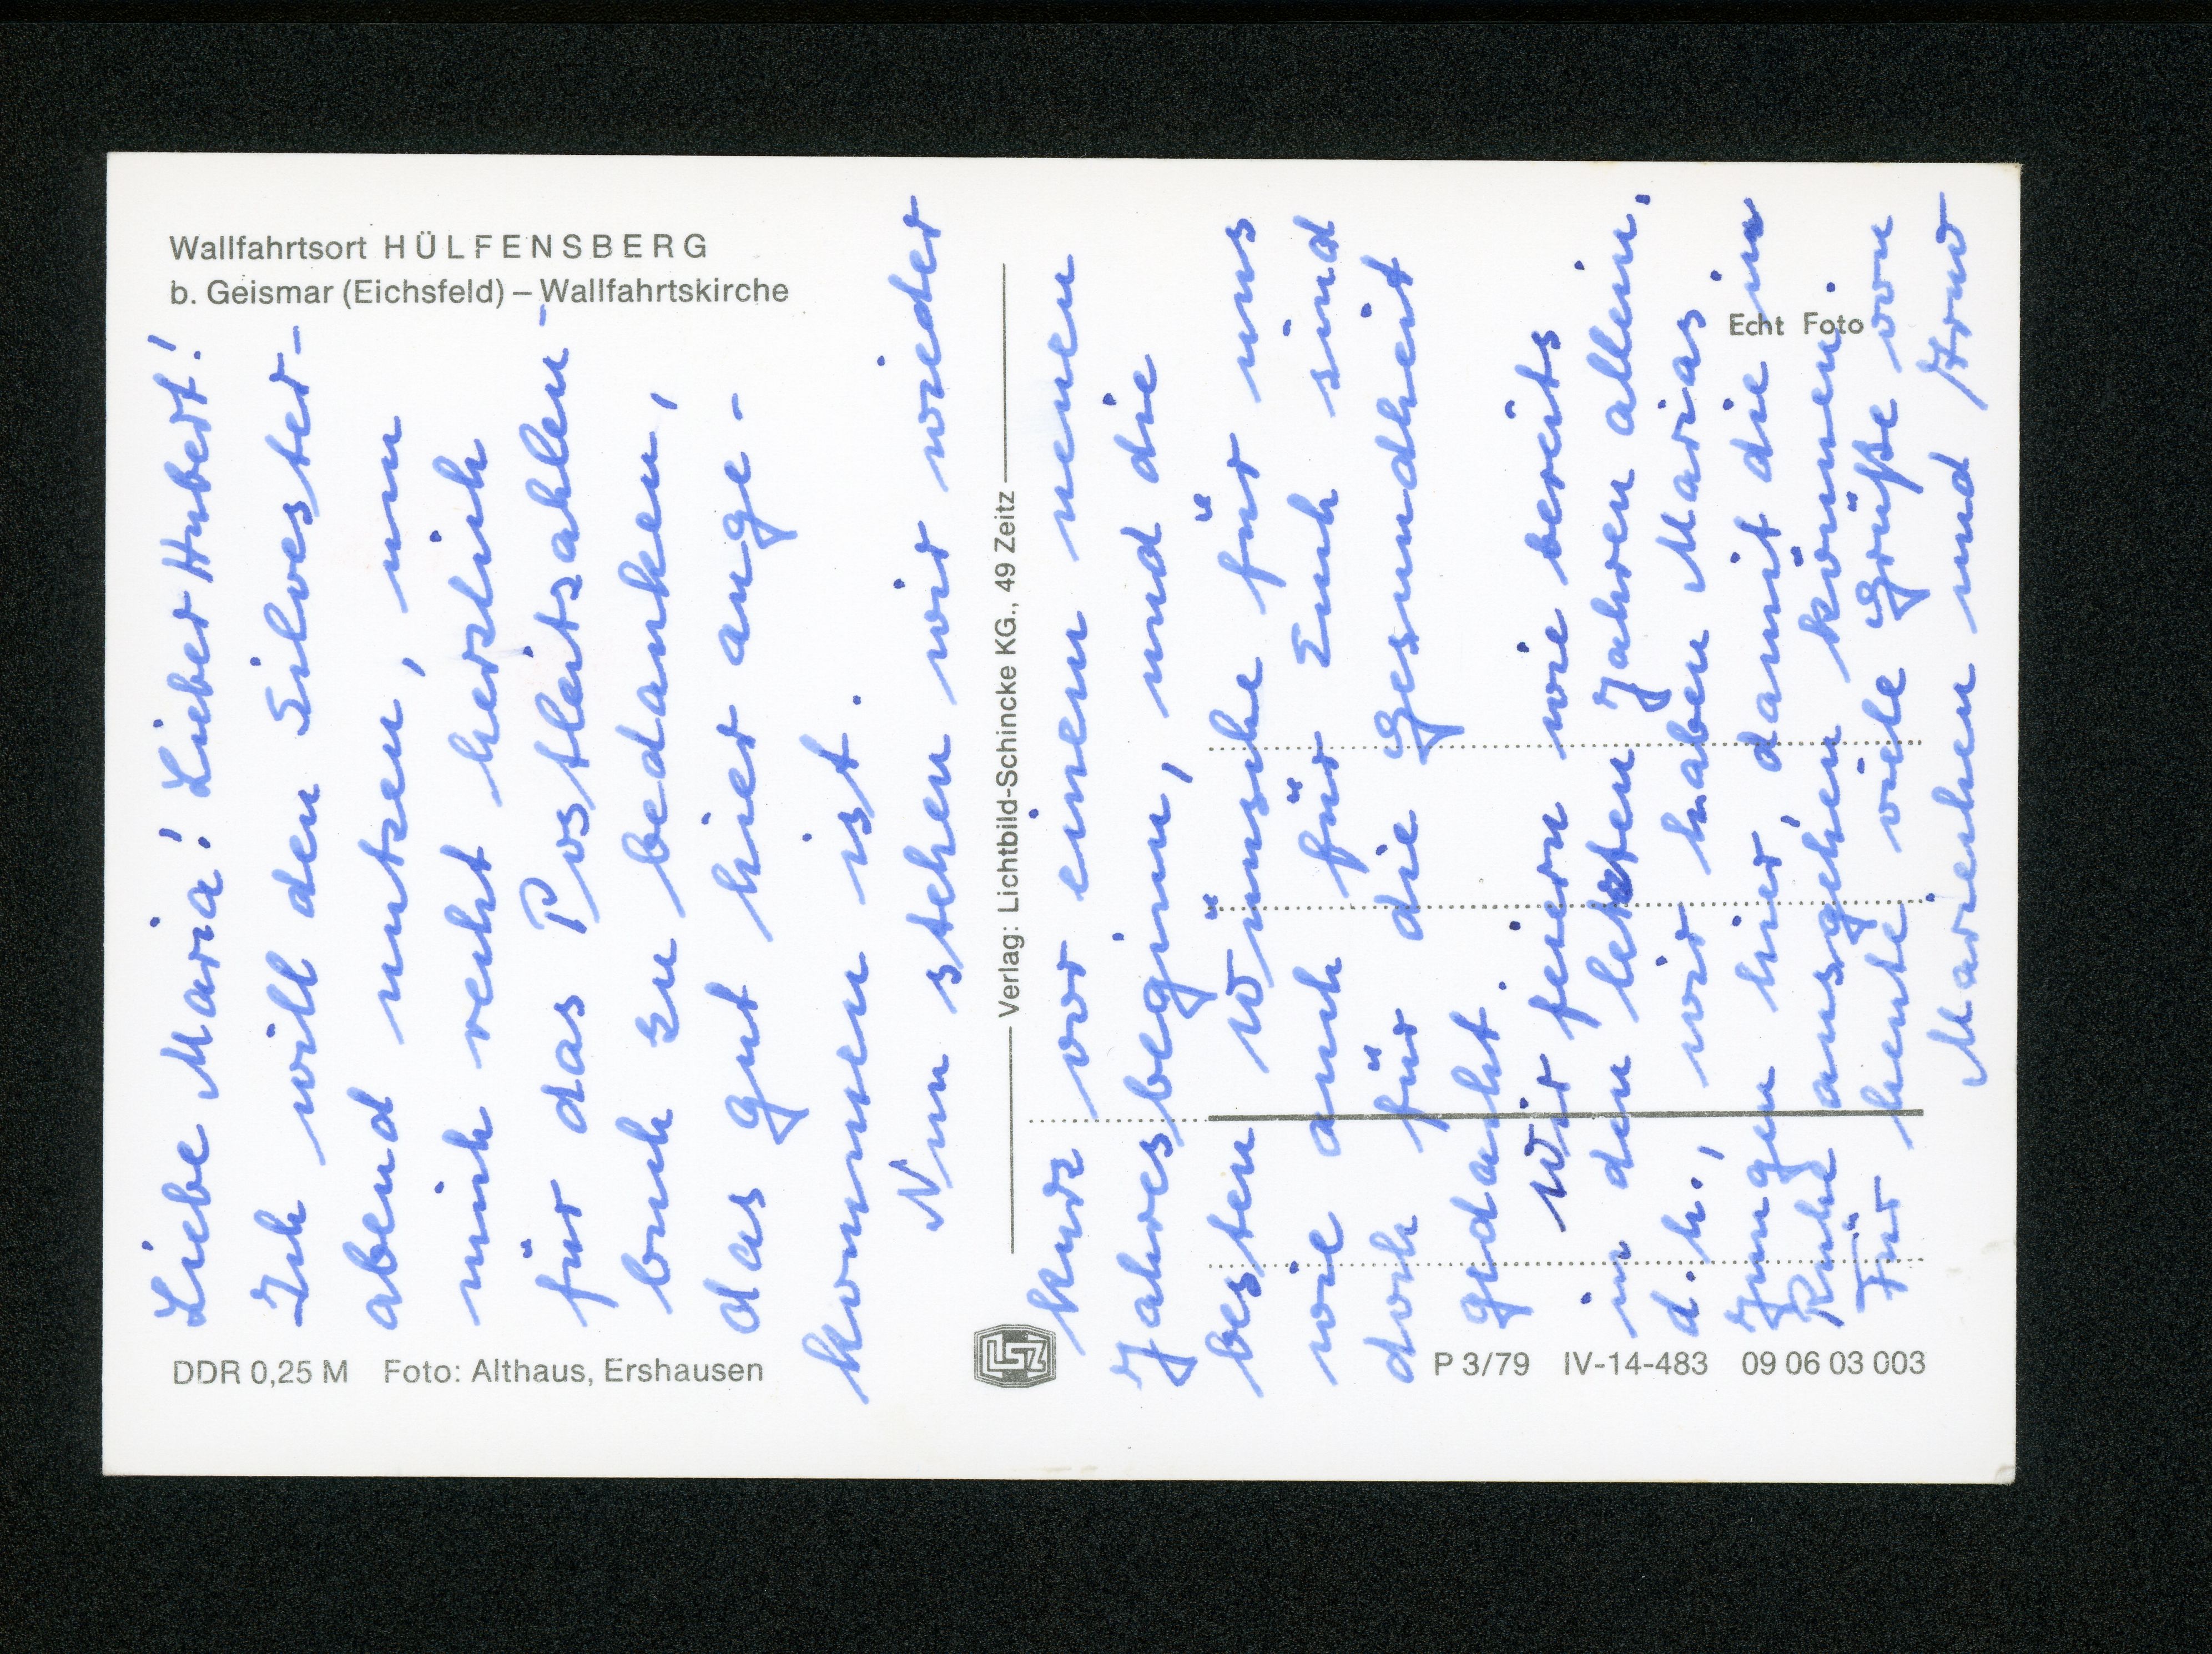 Wallfahrtsort HÜLFENSBERG
b. Geismar (Eichsfeld) – Wallfahrtskirche
Liebe Maria! Lieber Hubert!
Ich will den Silvester-
abend nutzen, um
mich recht herzlich
für das Postleitzahlen-
buch zu bedanken,
das gut hier ange-
kommen ist.
Nun stehen wir wieder
kurz vor einem neuen
Jahresbeginn, und die
besten Wünsche für uns
wie auch für Euch sind
doch für die Gesundheit
gedacht.
Wir feiern wie bereits
in den letzten Jahren allein,
d.h., wir haben Marias
Jungen hier, damit die in
Ruhe ausgehen können.
Für heute viele Grüße von
Mariechen und
Verlag: Lichtbild-Schincke KG., 49 Zeitz
Echt Foto
DDR 0,25 M Foto: Althaus, Ershausen
LSZ
P 3/79 IV-14-483 09 06 03 003